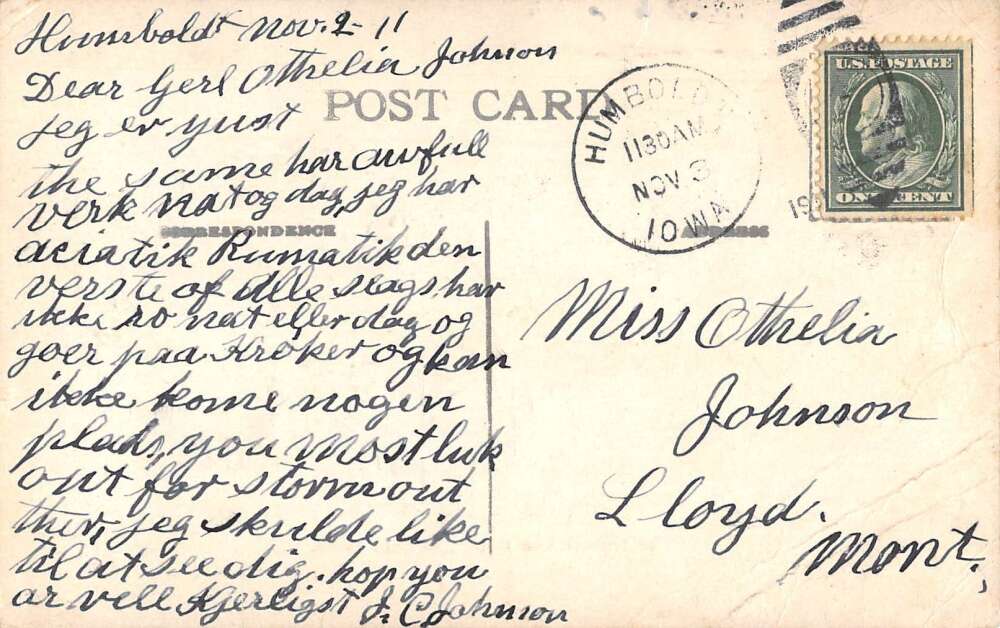 Humboldt Nov. 2-11
Dear Gerl Othelia Johnson
POST CARD
jeg er yust
the same har awfull
verk nat og dag, jeg har
CORRESPONDENCE
aciatik Rumatik den
verste of Alle slags har
ikke ro nat eller dag og
goer paa Kroker og kan
ikke kome nogen
plads, you most luk
out for storm out
ther, jeg skulde like
til at see dig. hop you
ar vell Kjerligst J. C. Johnson
HUMBOLDT
1130 AM
NOV 3
IOWA
19
U.S. POSTAGE
ONE CENT
Miss Othelia
Johnson
Lloyd.
Mont.